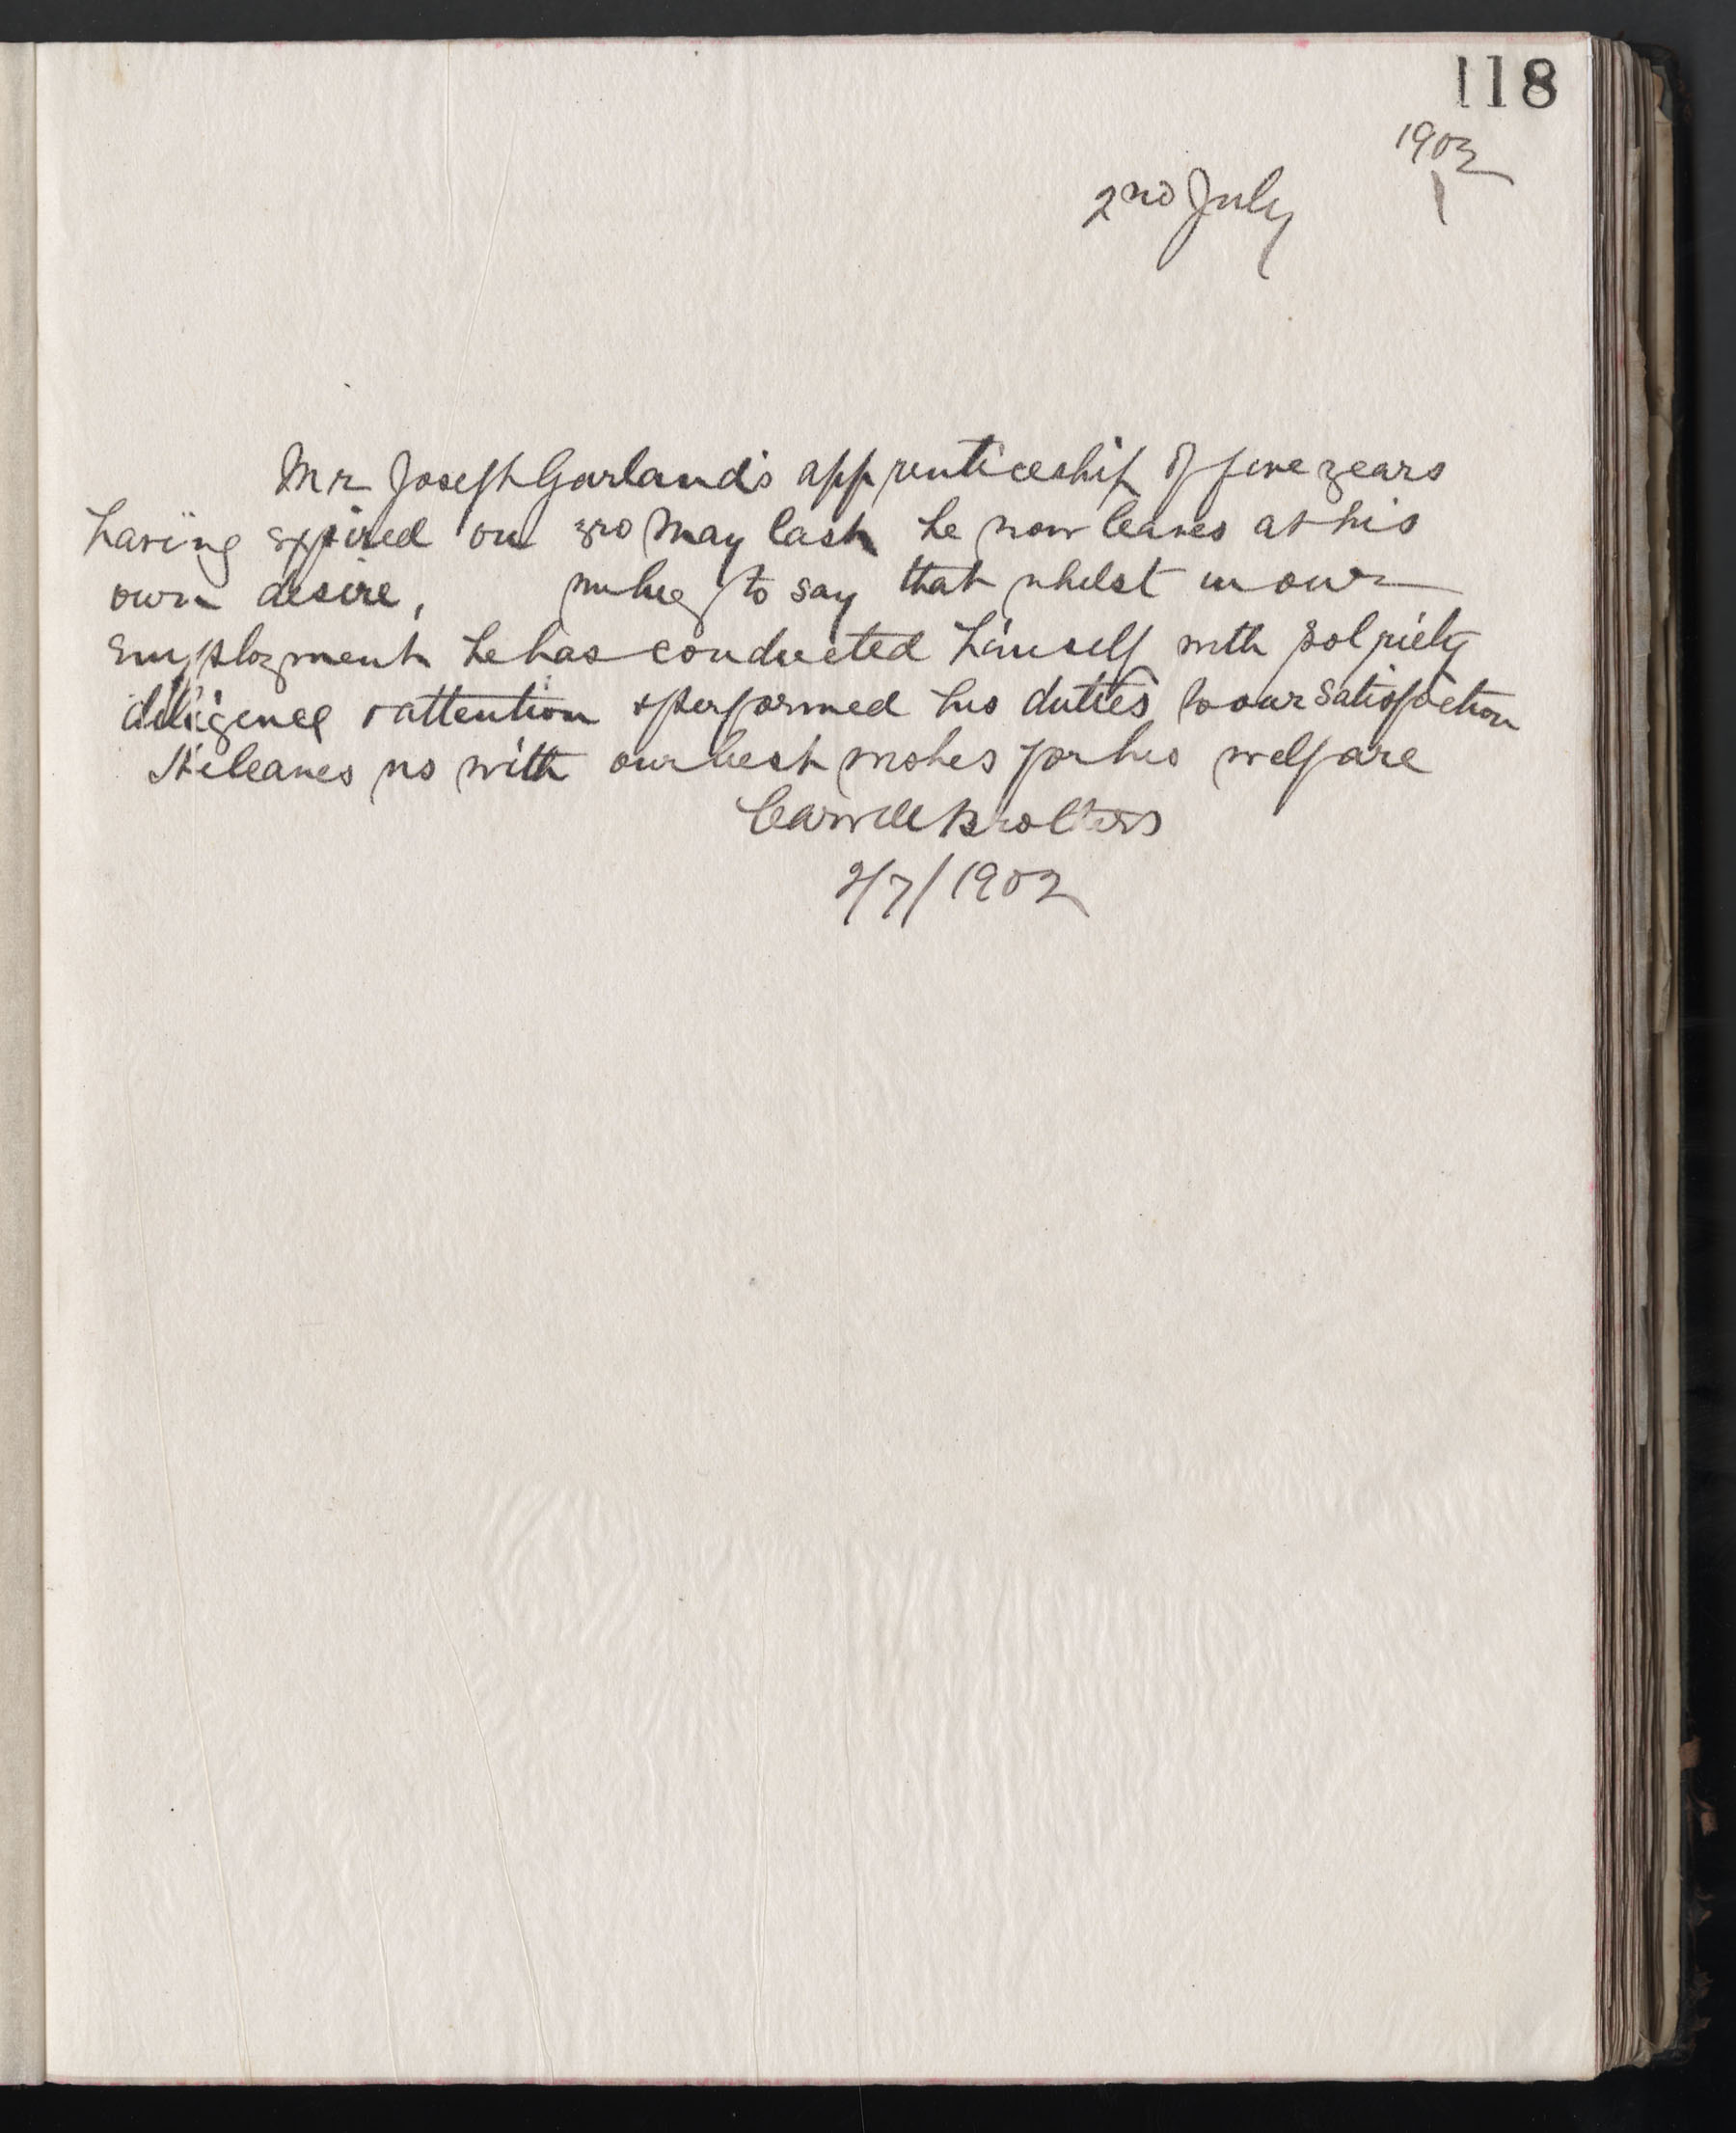 118
1902
2nd July
Mr Joseph Garland's apprenticeship of five years
having expired on 3rd May last he now leaves at his
own desire, we beg to say that whilst in our
employment he has conducted himself with sobriety
diligence & attention & performed his duties to our satisfaction
He leaves us with our best wishes for his welfare
Brothers
2/7/1902